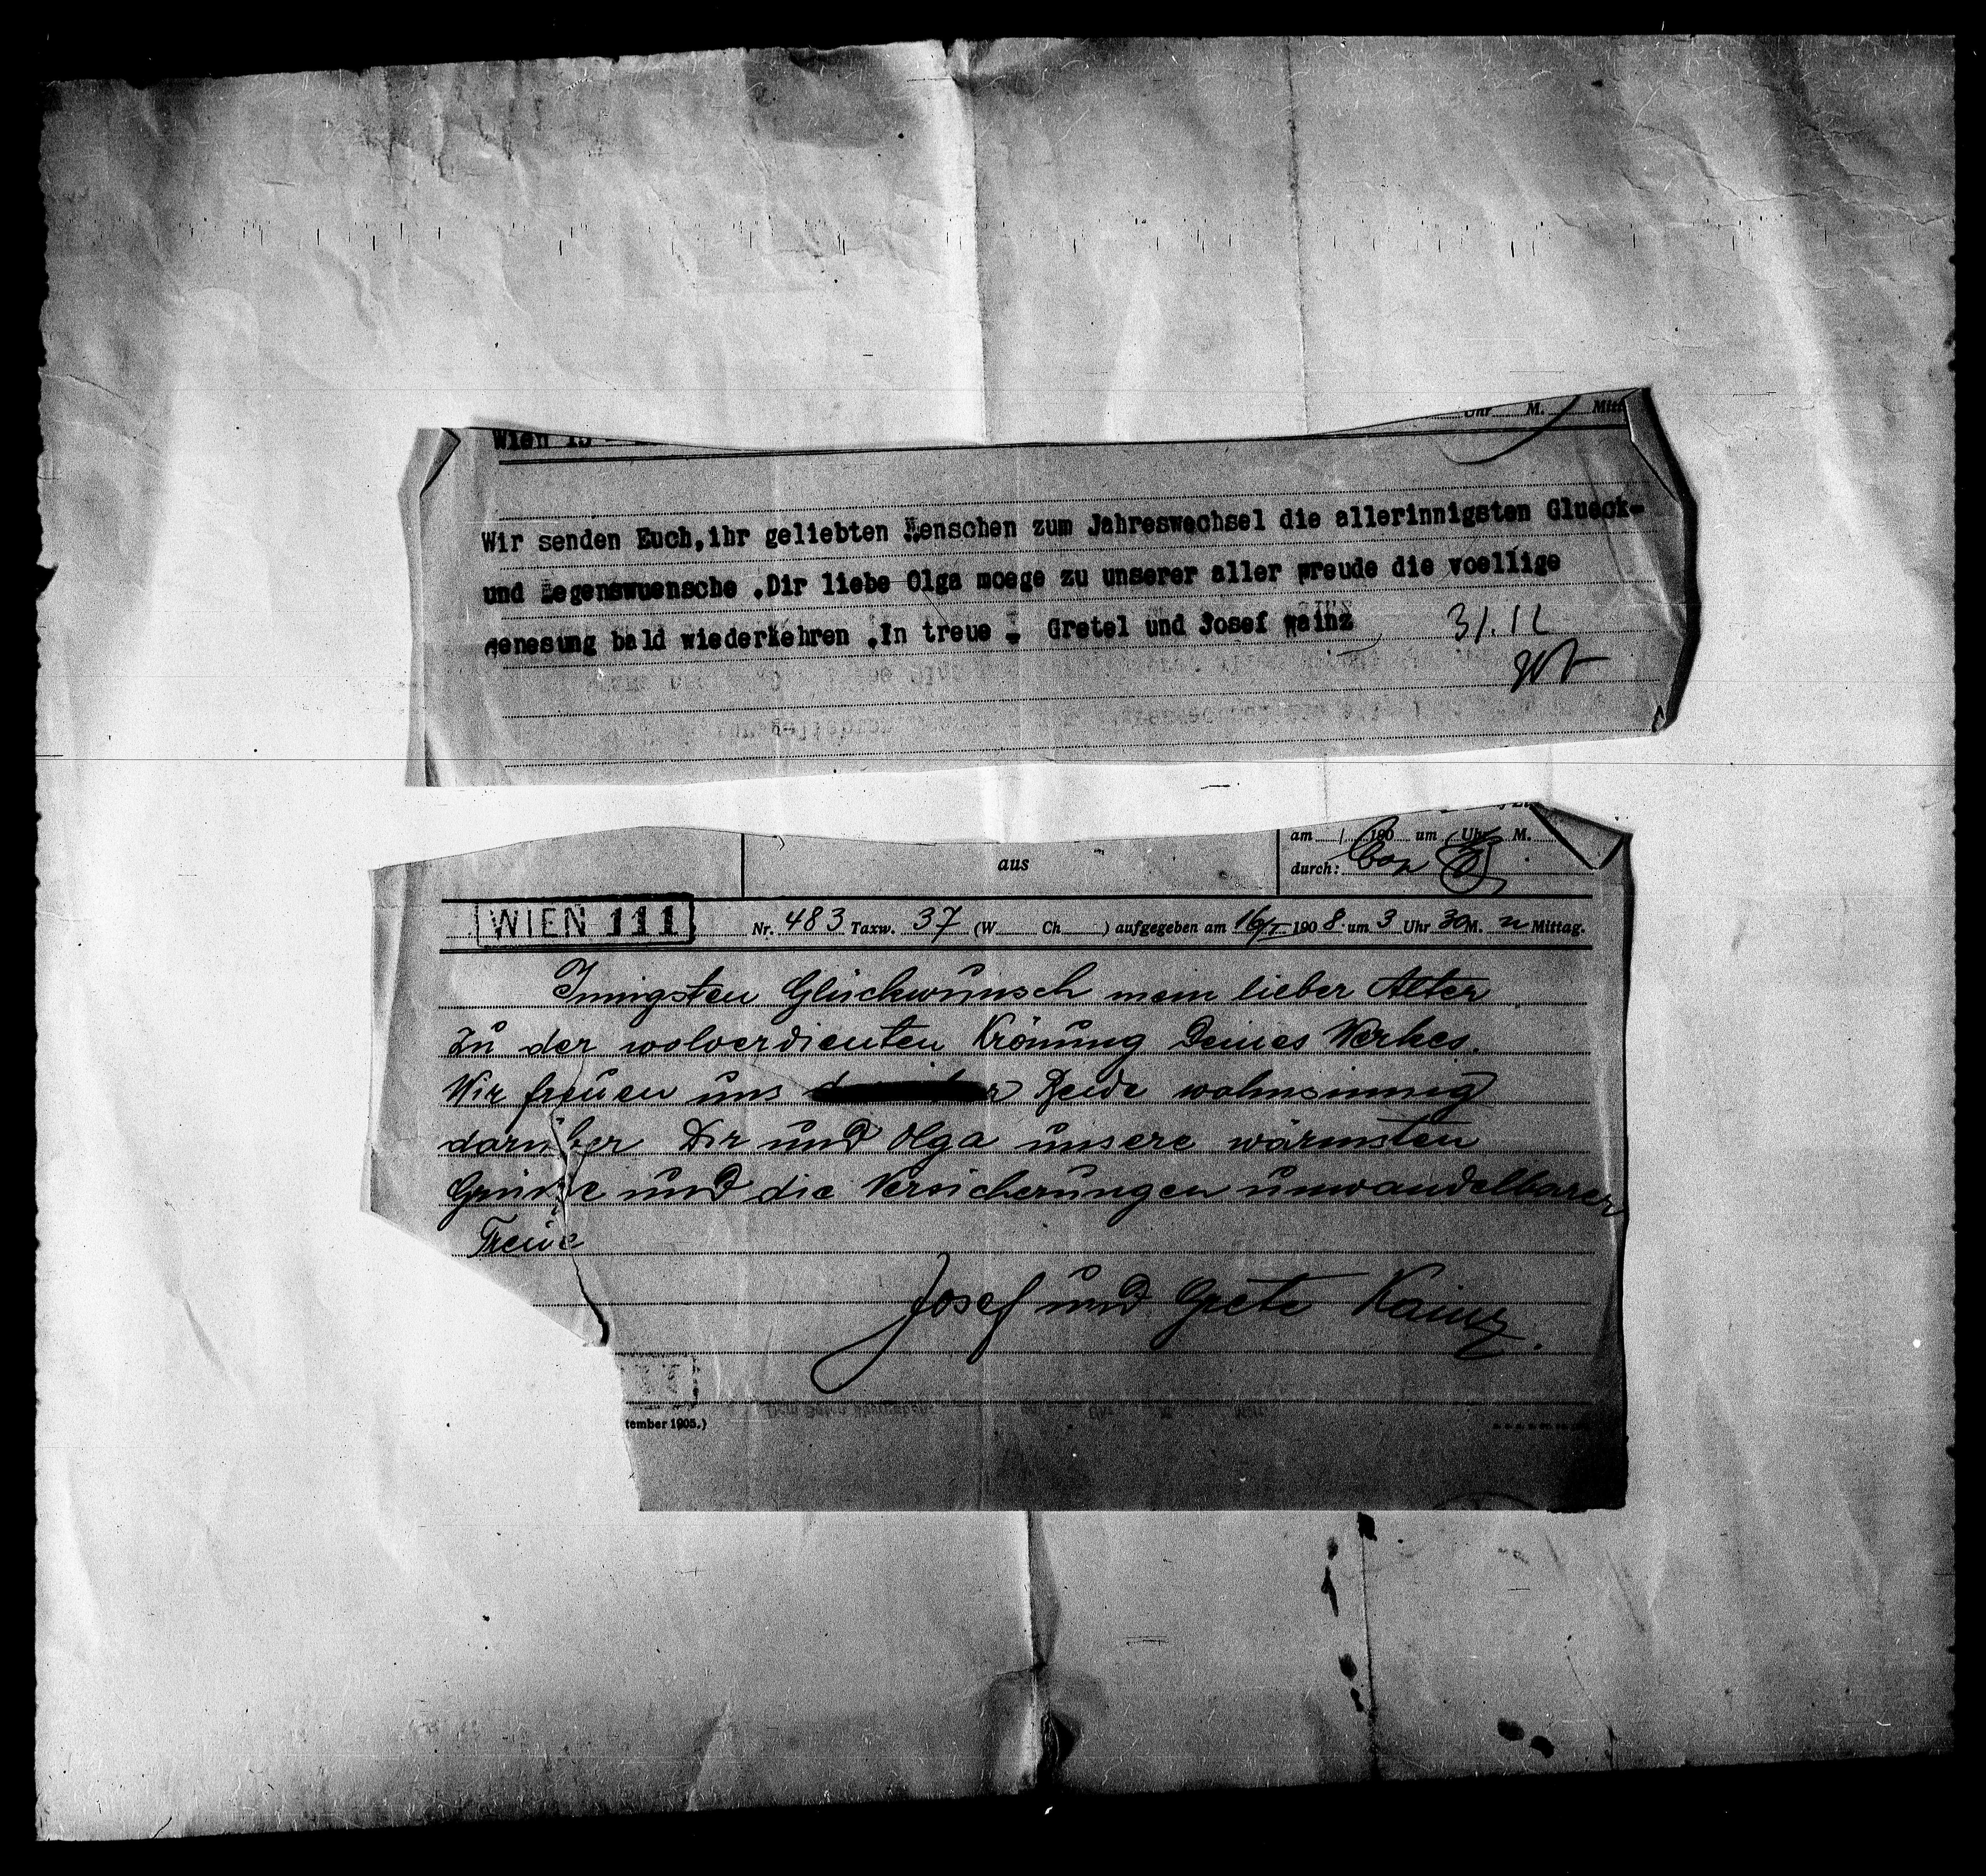 Uhr M. Mitt
Wien 15
Wir senden Euch,ihr geliebten Menschen zum Jahreswechsel die allerinnigsten Glueck-
und Segenswuensche .Dir liebe Olga moege zu unserer aller Freude die voellige
Genesung bald wiederkehren .In treue - Gretel und Josef Kainz
31.12
am / 190 um Uhr M.
aus
durch:
WIEN 111 Nr. 483 Taxw. 37 (W Ch ) aufgegeben am 16/I 1908 um 3 Uhr 30 M. n Mittag.
Innigsten Glückwunsch mein lieber Alter
Zu der wolverdienten Krönung Deines Werkes.
Wir freuen uns Beide wahnsinnig
darüber Dir und Olga unsere wärmsten
Grüsse und die Versicherungen unwandelbarer
Treue
Josef und Grete Kainz.
tember 1905.)